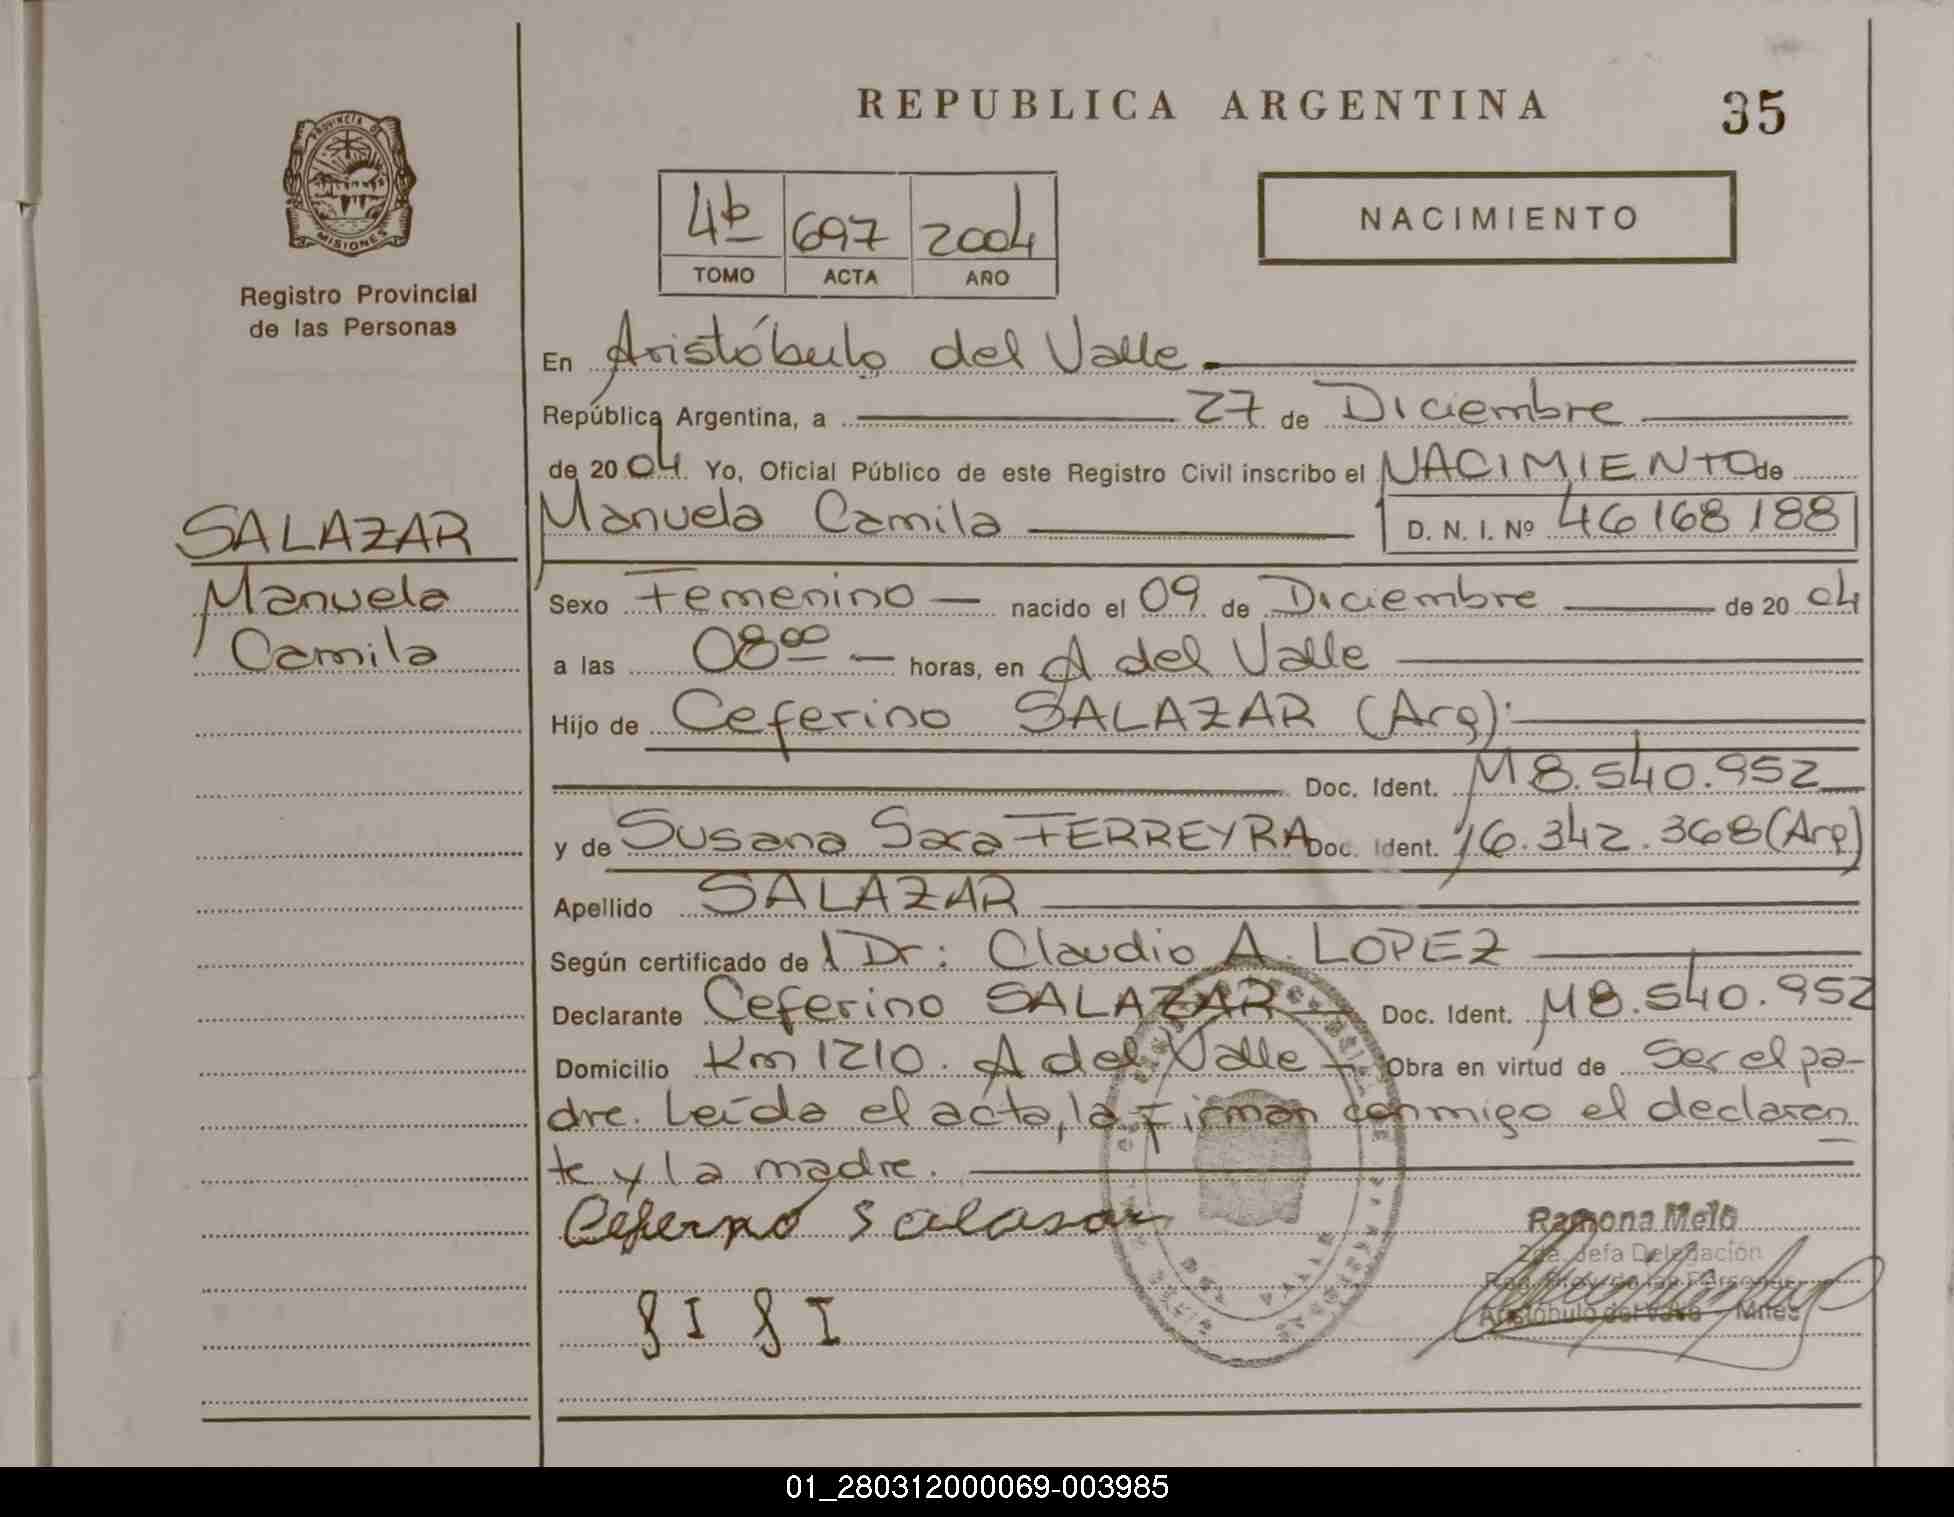 REPUBLICA ARGENTINA
35
PROVINCIA DE
MISIONES
Registro Provincial
de las Personas
4b 697 2004
TOMO ACTA AÑO
NACIMIENTO
En Aristóbulo del Valle.
República Argentina, a 27 de Diciembre
de 2004. Yo, Oficial Público de este Registro Civil inscribo el NACIMIENTO de
Manuela Camila D. N. I. Nº 46168188
SALAZAR
Manuela
Camila
Sexo Femenino — nacido el 09 de Diciembre de 2004
a las 08 00 — horas, en A del Valle
Hijo de Ceferino SALAZAR (Arg).
Doc. Ident. M 8.540.952
y de Susana Sara FERREYRA Doc. Ident. 16.342.368 (Arg)
Apellido SALAZAR
Según certificado de l Dr: Claudio A. LOPEZ
Declarante Ceferino SALAZAR Doc. Ident. M 8.540.952
Domicilio Km 1210. A del Valle — Obra en virtud de Ser el pa-
dre. Leída el acta, la firman conmigo el declaran
te y la madre.
Ramona Melo
2da. Jefa Delegación
Reg. Prov. de las Personas
Aristóbulo del Valle - Mnes
01_280312000069-003985